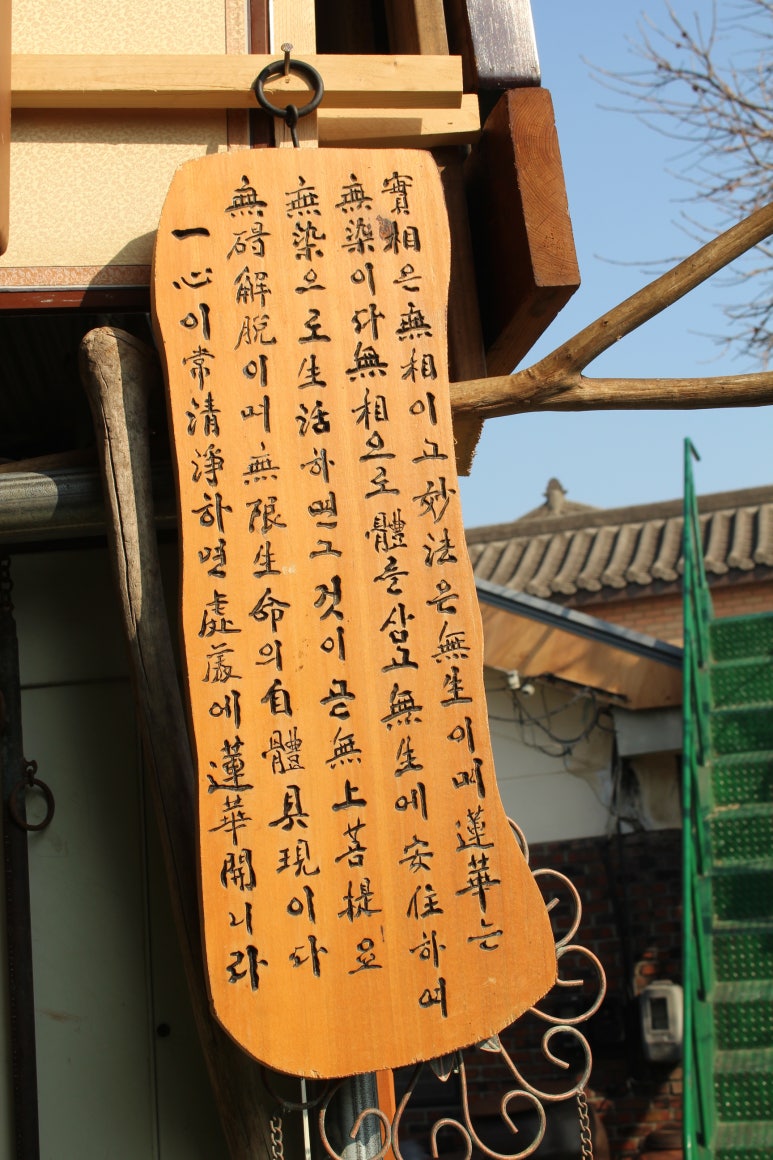 實相은無相이고妙法은無生이며蓮華는
無染이다無相으로體를삼고無生에安住하여
無染으로生活하면그것이곧無上菩提요
無碍解脫이며無限生命의自體具現이다
一心이常清淨하면處處에蓮華開니라